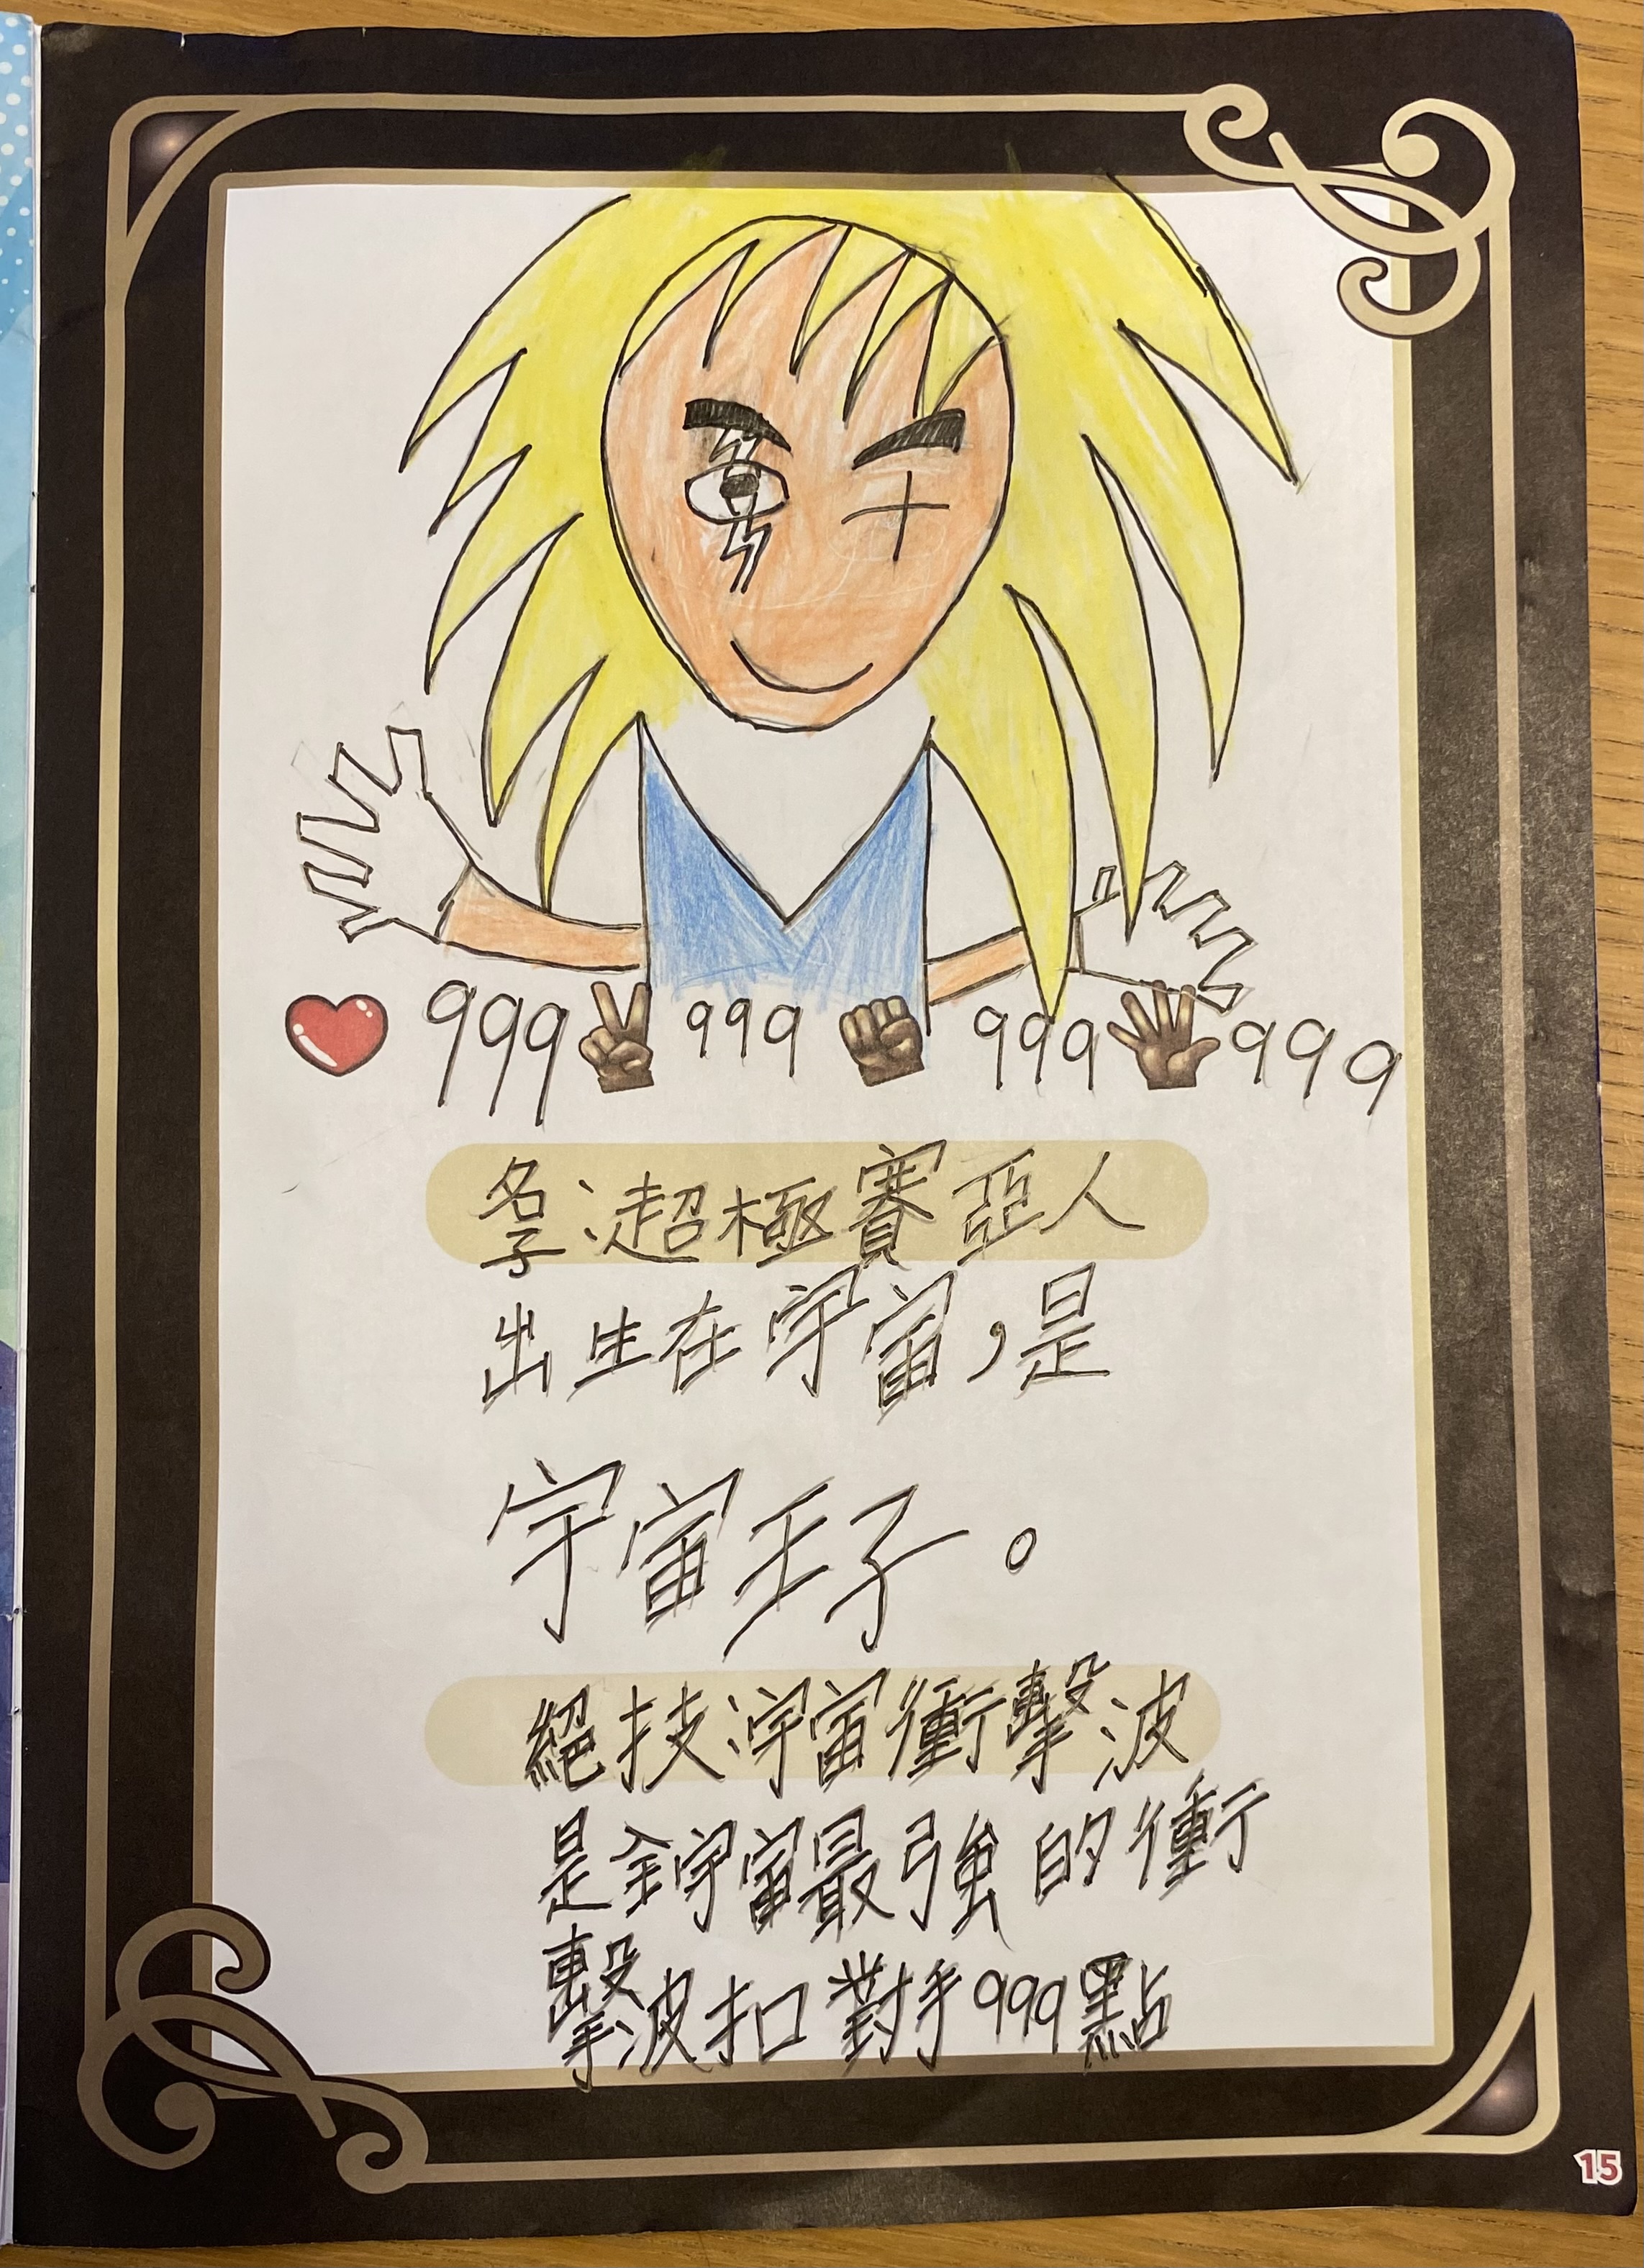 999 999 999 999
名字：超極賽亞人
出生在宇宙，是
宇宙王子。
絕技：宇宙衝擊波
是全宇宙最強的衝
擊波扣對手999點
15